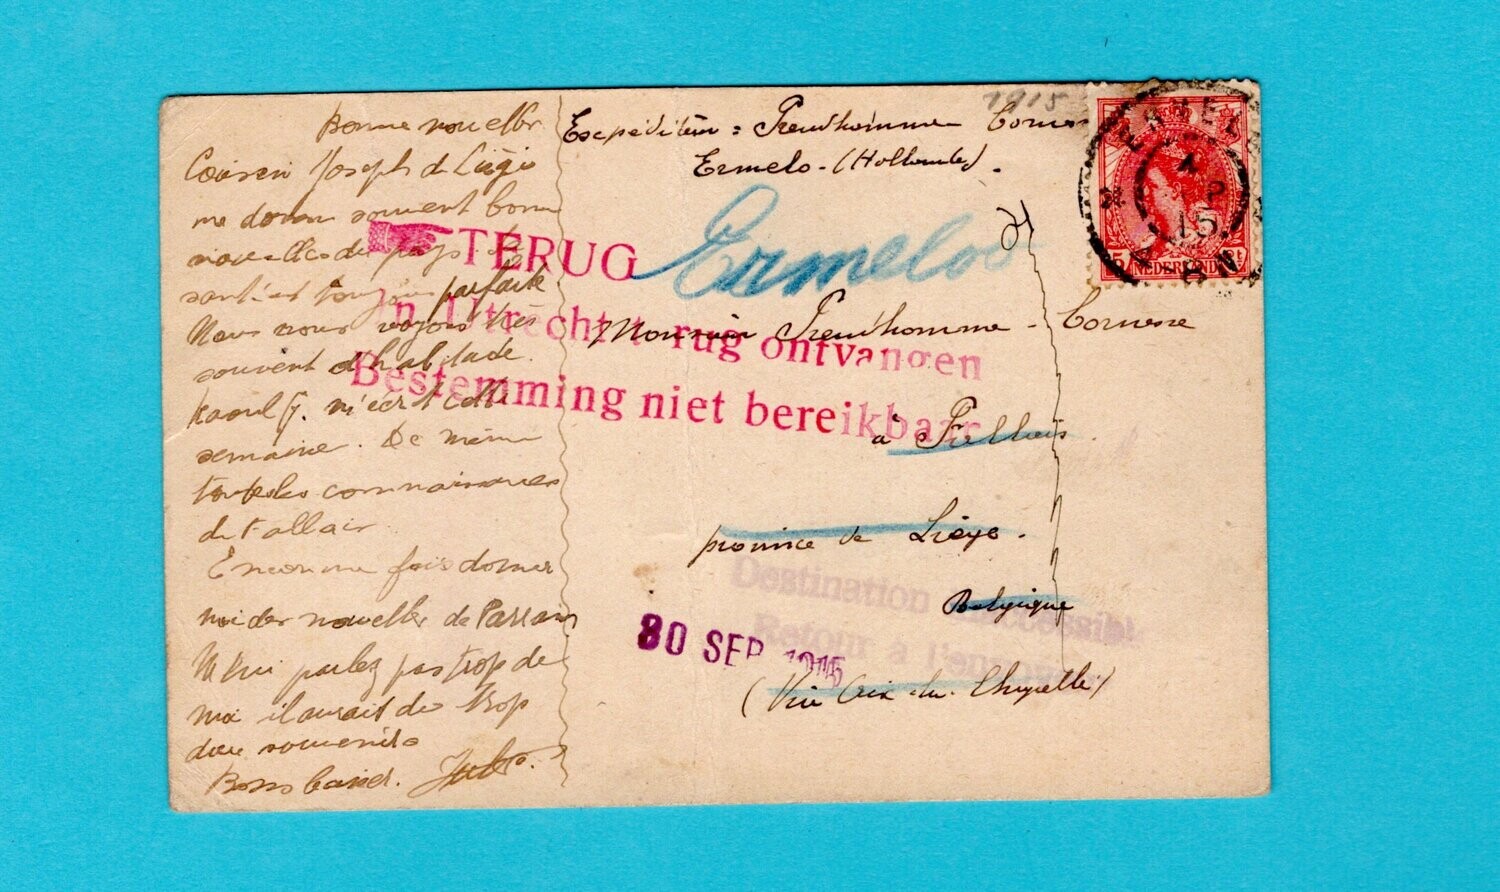 Bonne nouvelles
Cousin Joseph de Liège
me donne souvent bonne
nouvelles du pays de
santé est toujours parfaite
Nous nous voyons très
souvent d'habitude.
Raoul G. m'écrit cette
semaine. De même
toutes les connaissances
de Fallais
Encore une fois donner
moi des nouvelles de Parrain
parlez pas trop de
moi il aurait de trop
doux souvenirs
Bons baisers. Jules.
1915
Expéditeur = Preudhomme Cornesse
Ermelo - (Hollande).
ERMELO
15
5 Ct
NEDERLAND
TERUG
Ermeloo
In Utrecht terug ontvangen
Bestemming niet bereikbaar
Monsieur Preudhomme - Cornesse
à Fallais
province de Liège.
Belgique
(Via Aix-la-Chapelle)
Destination inaccessible
Retour à l'envoyeur
30 SEP 1915